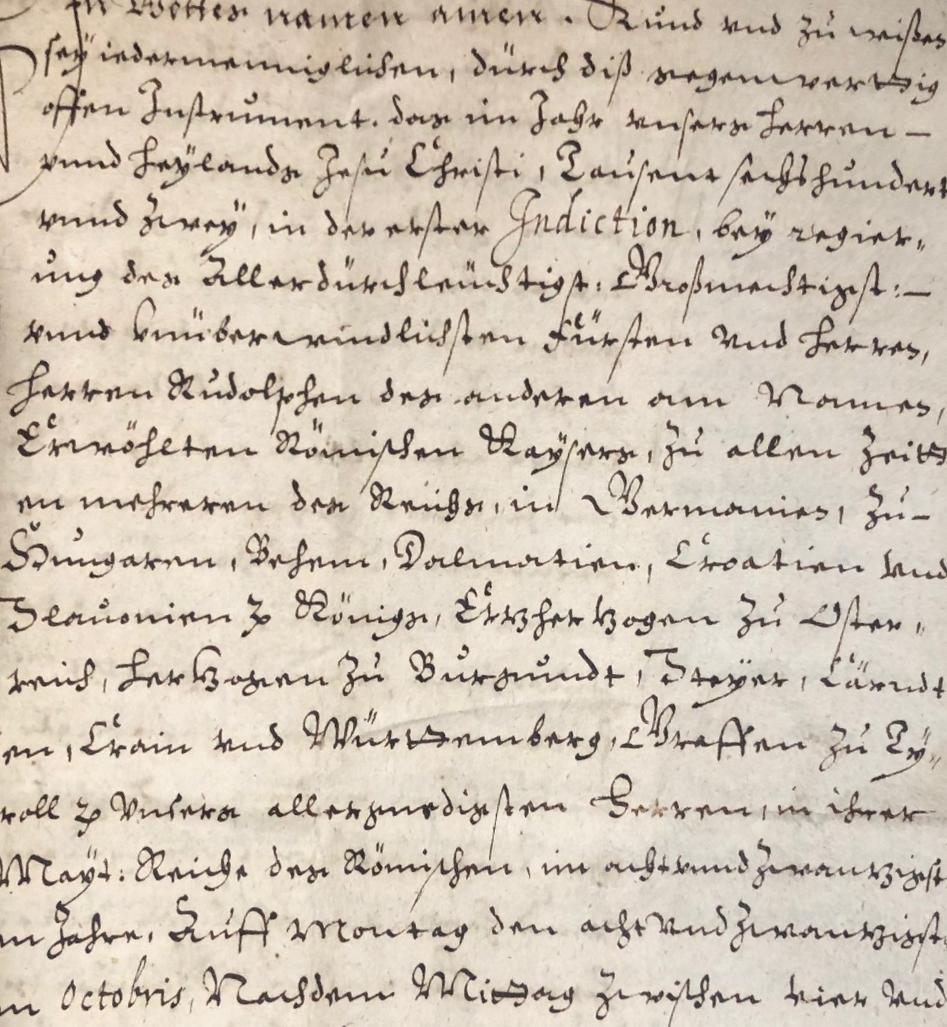 In Gottes namen amen. Kund vnd zu wissen
sey iedermenniglichen, durch diß gegenwerttig
offen Instrument. das im Jahr vnsers Herren –
vnnd Heylands Jesu Christi, Tausent sechshundert
vnnd zwey, in der erster Indiction, bey regier„
ung des Allerdurchleuchtigst: Großmechtigst: –
vnnd Vnüberwindlichsten Fürsten vnd Herren,
Herren Rudolphen des anderen am Namen,
Erwöhlten Römischen Kaysers, zu allen Zeitt
en mehreren des Reichs, in Germanien, zu –
Hungaren, Behem, Dalmatien, Croatien vnd
Slauonien ꝛc Königs, Ertzhertzogen zu Oster„
reich, Hertzogen zu Burgundt, Steyer, Cärndt
en, Crain vnd Württemberg, Graffen zu Ty„
roll ꝛc Vnsers allergnedigsten Herren, in ihrer
Mayt: Reiche des Römischen, im achtvnndzwantzigst
en Jahre, Auff Montag den achtvndzwantzigst
en Octobris, Nachdem Mittag zwischen vier vnd